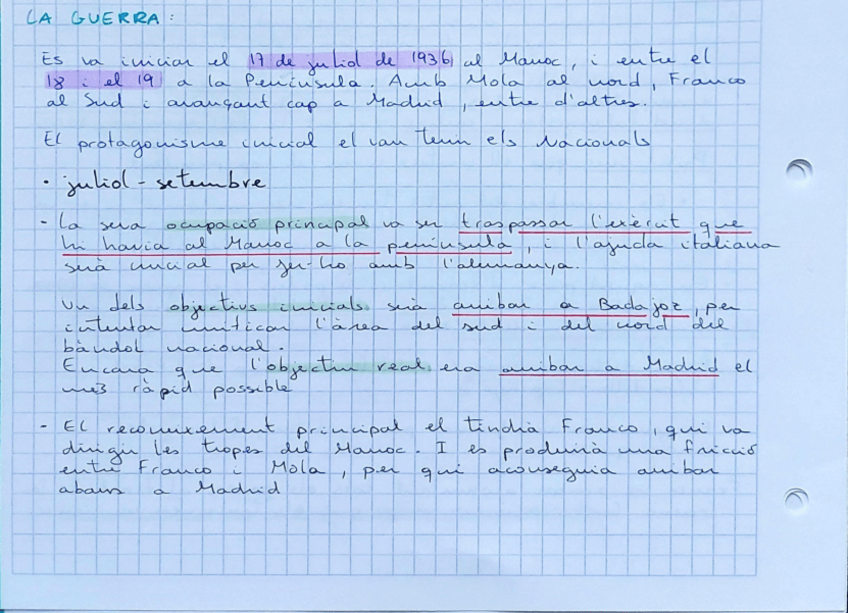 LA GUERRA:
Es va iniciar el 17 de juliol de 1936 al Marroc, i entre el
18 i el 19 a la Península. Amb Mola al nord, Franco
al Sud i avançant cap a Madrid, entre d'altres.
El protagonisme inicial el van tenir els Nacionals
· juliol - setembre
- La seva ocupació principal va ser traspassar l'exèrcit que
hi havia al Marroc a la península, i l'ajuda italiana
serà crucial per fer-ho amb l'alemanya.
Un dels objectius inicials serà arribar a Badajoz, per
intentar unificar l'àrea del sud i del nord del
bàndol nacional.
Encara que l'objectiu real era arribar a Madrid el
més ràpid possible
- El reconeixement principal el tindrà Franco, qui va
dirigir les tropes del Marroc. I es produirà una fricció
entre Franco i Mola, per qui aconseguia arribar
abans a Madrid